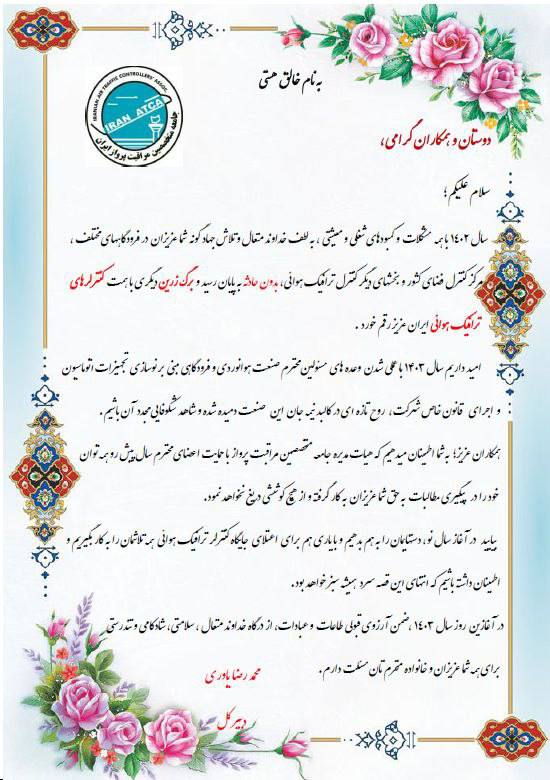 به نام خالق هستی
IRANIAN AIR TRAFFIC CONTROLLERS' ASSOC.
IRAN ATCA
جامعه متخصصین مراقبت پرواز ایران
دوستان و همکاران گرامی،
سلام علیکم؛
سال ۱۴۰۲ با همه مشکلات و کمبودهای شغلی و معیشتی، به لطف خداوند متعال و تلاش جهادگونه شما عزیزان در فرودگاههای مختلف،
مرکز کنترل فضای کشور و بخشهای دیگر کنترل ترافیک هوائی، بدون حادثه به پایان رسید و برگ زرین دیگری با همت کنترلرهای
ترافیک هوائی ایران عزیز رقم خورد.
امید داریم سال ۱۴۰۳ با عملی شدن وعده های مسئولین محترم صنعت هوانوردی و فرودگاهی مبنی بر نوسازی تجهیزات اتوماسیون
و اجرای قانون خاص شرکت، روح تازه ای در کالبد نیمه جان این صنعت دمیده شده و شاهد شکوفایی مجدد آن باشیم.
همکاران عزیز؛ به شما اطمینان میدهیم که هیات مدیره جامعه متخصصین مراقبت پرواز با حمایت اعضای محترم سال پیش رو همه توان
خود را در پیگیری مطالبات به حق شما عزیزان به کار گرفته و از هیچ کوششی دریغ نخواهد نمود.
بیایید در آغاز سال نو، دستهایمان را به هم بدهیم و با یاری هم برای اعتلای جایگاه کنترلر ترافیک هوائی همه تلاشمان را به کار بگیریم و
اطمینان داشته باشیم که انتهای این قصه سرد همیشه سبز خواهد بود.
در آغازین روز سال ۱۴۰۳، ضمن آرزوی قبولی طاعات و عبادات، از درگاه خداوند متعال، سلامتی، شادکامی و تندرستی
برای همه شما عزیزان و خانواده محترم تان مسئلت دارم.
محمد رضا یادری
دبیر کل